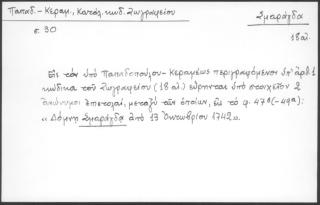 Παπαδ.-Κεραμ., Κατάλ. κωδ. Ζωγραφείου
Σμαράγδα
σ. 30
18 αἰ.
Εἰς τὸν ὑπὸ Παπαδοπούλου-Κεραμέως περιγραφόμενον ὑπ' ἀρ. 1
κώδικα τοῦ Ζωγραφείου (18 αἰ.) εὕρηνται ὑπὸ στοιχεῖον 2
ἀνώνυμοι ἐπιστολαί, μεταξὺ τῶν ὁποίων, εἰς τὸ φ. 47α (-49α):
«Δόμνῃ Σμαράγδᾳ ἀπὸ 13 Ὀκτωβρίου 1742».